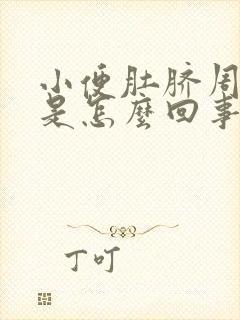 小便肚脐周
是怎麼回事
丁叮